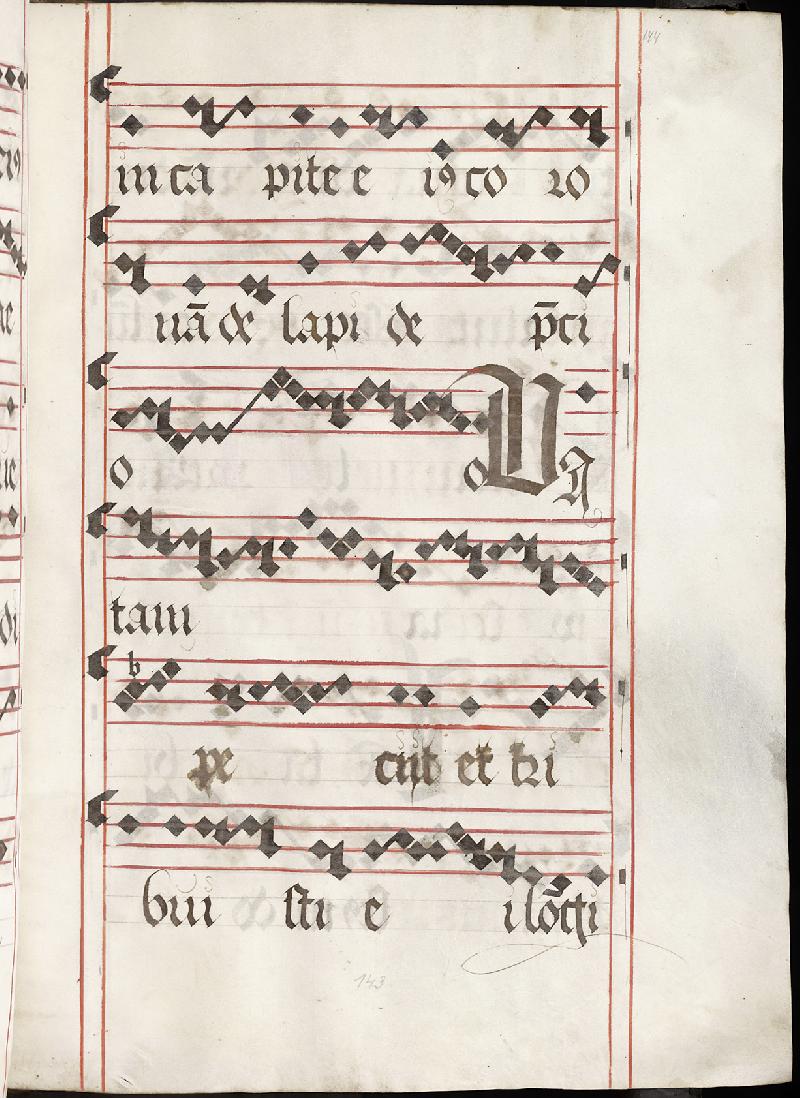 144
in ca pite e i9 co ro
nā de lapi de p̄ci
o o Vā
tam
b
pe ciit et tri
buisti e i lō
143